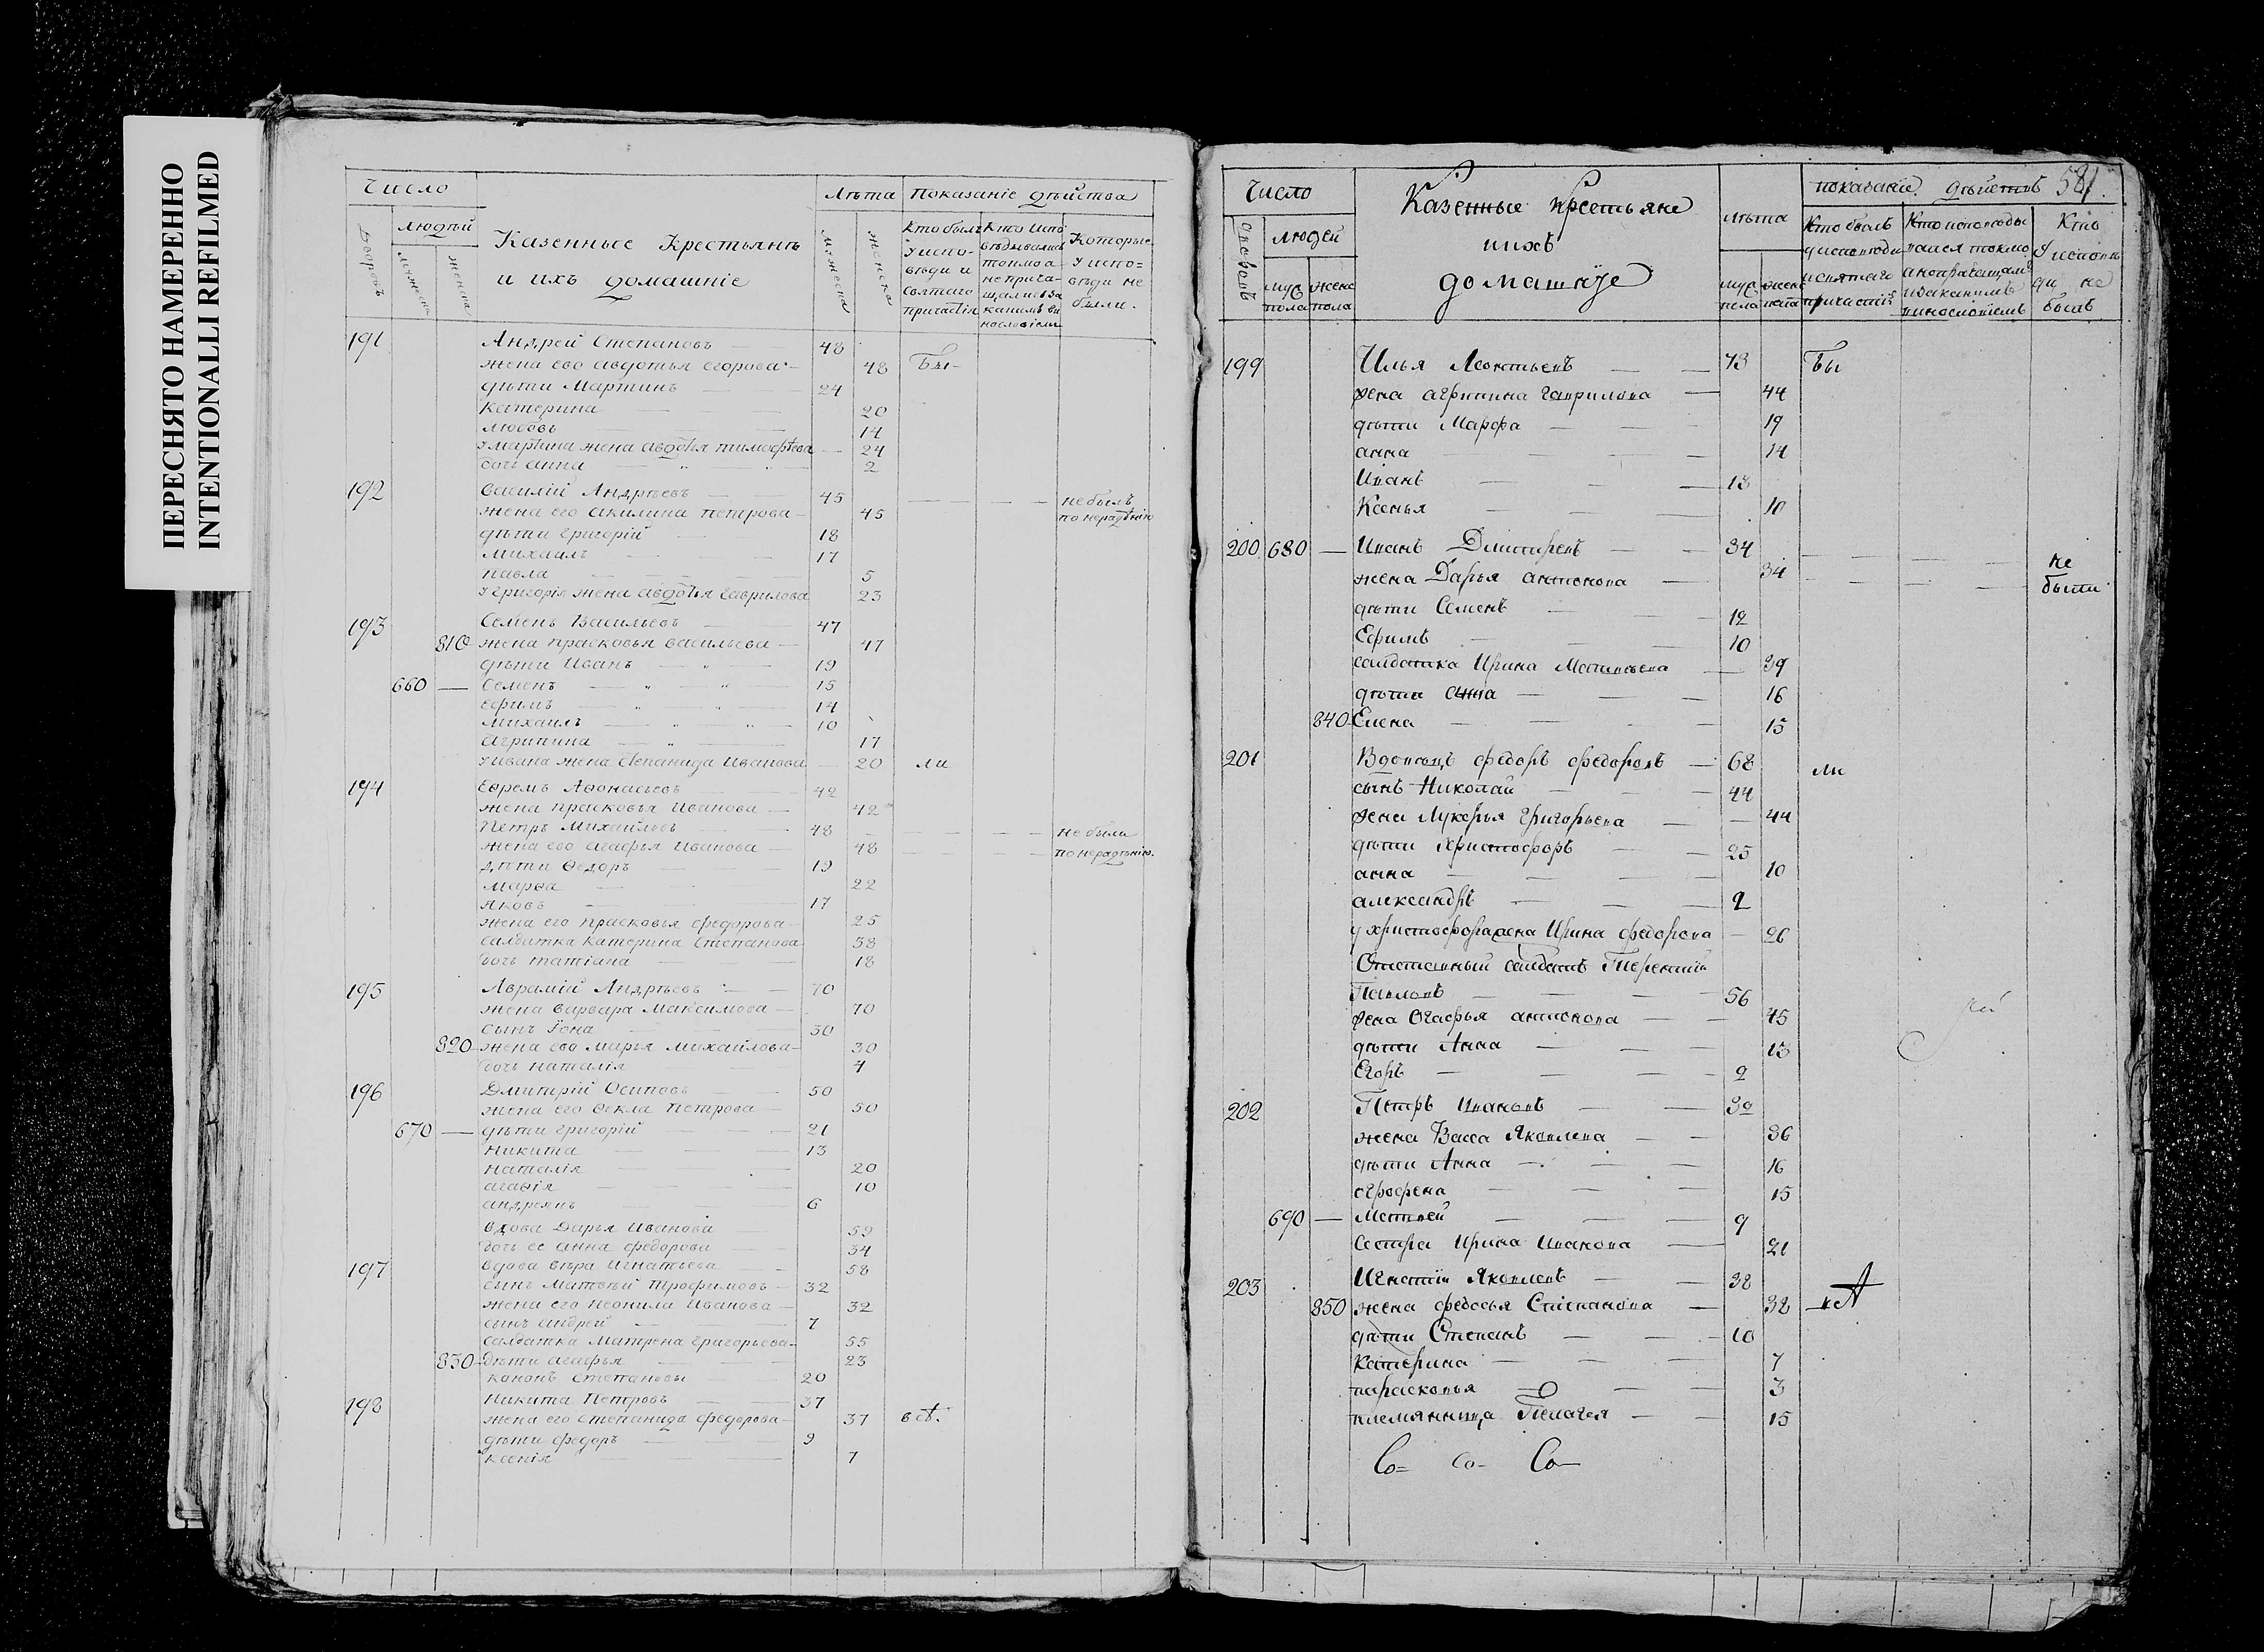 ПЕРЕСНЯТО НАМЕРЕННО
INTENTIONALLI REFILMED
Число
Лѣта
показаніе дѣйства
дворовъ
людей
мужеска
женска
Казенные Крестьянѣ
и ихъ домашніе
мужеска
женска
кто былъ
у испо-
вѣди и
святаго
причастія
кто испо
вѣдывались
токмо а
не прича-
щались за
какимъ ви
нословіемъ
Которые
у испо=
вѣди не
были.
191 Андрей Степановъ — 48
жена ево авдотья егорова — 48 Бы-
дѣти Мартинъ — 24
катерина — 20
любовь — 14
у мартина жена авдотья тимофѣева — 24
дочь анна — 2
192 Василій Андрѣевъ — 45 — — — не былъ
жена его акилина петрова — 45 по нерадѣнію
дѣти григорій — 18
михаилъ — 17
павла — 5
у григорія жена авдотья гаврилова 23
193 Семенъ Васильевъ — 47
810 жена прасковья васильева — 47
дѣти Иванъ — 19
660 — Семенъ — 15
ефимъ — 14
михаилъ — 10
агрипина — 17
у ивана жена степанида иванова — 20 ли
194 Ефремъ Афонасьевъ 42
жена прасковья иванова — 42
Петръ Михаиловъ 48 — — — не были
жена ево агафья иванова — 48 — — — по нерадѣнію.
дѣти Ѳедоръ — 19
марѳа — 22
яковъ — 17
жена его прасковья федорова 25
салдатка катерина степанова 58
дочь татіана — 18
195 Аврамій Андрѣевъ — 70
жена варвара максимова — 70
сынъ Іона — 30
820 — жена ево марья михайлова — 30
дочь наталія 4
196 Дмитрій Осиповъ — 50
жена его Ѳекла петрова — 50
670 — дѣти григорій — 21
никита — 13
наталія — 20
агафія — 10
андреянъ — 6
вдова Дарья Иванова 59
дочь ее анна федорова — 34
197 вдова вѣра игнатьева — 58
сынъ матвѣй трофимовъ — 32
жена его неонила иванова — 32
синъ андрей — 7
салдатка матрена григорьева — 55
830 — дѣти агафья — 23
кононъ степановы — 20
198 Никита Петровъ — 37
жена его степанида федорова — 37 всѣ.
дѣти федоръ — 9
ксенія — 7
Число
Казенные крестьяне
ихъ
домашнiе
лѣта
показанiе дѣйствъ 581.
людей
муз пола
жена пола
199 Илья Леонтьевъ — 43 Бы
жена агрипина гаврилова — 44
дѣти Марфа — 19
анна — 14
Иванъ — 13
Ксенья — 10
200 680 — Иванъ Дмитрiевъ — 34 — — — не
жена Дарья антонова — 34 — — — были
дѣти Семенъ — 12
Ефимъ — 10
салдатка Ирина Матвѣева — 39
дѣти анна — 16
840 Елена — 15
201 Вдовецъ федоръ федоровъ — 68 ли
сынъ Николай — 44
жена Лукерья григорьева — 44
дѣти христофоръ — 25
анна — 10
александръ — 2
у христофора жена Ирина федорова — 26
Отставный салдатъ Терентий
Павловъ — 56
жена Огафья антонова — 45
дѣти Анна — 13
Егоръ — 2
202 Петръ Ивановъ — 32
жена Васса Яковлева — 36
дѣти Анна — 16
огрофена — 15
690 — Матвей — 9
Сестра Ирина Иванова — 21
203 Игнатiй Яковлевъ — 38
850 жена федосья Степанова — 38
дѣти Степанъ — 10
Катерина — 7
парасковья — 3
племянница Пелагея — 15
Со= со- Со-